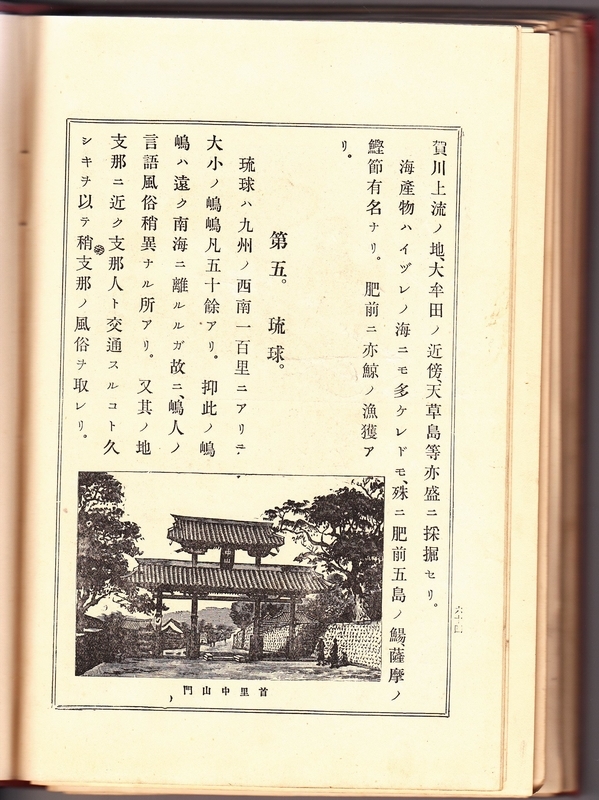 賀川上流ノ地、大牟田ノ近傍、天草島等亦盛ニ採掘セリ。
海產物ハイヅレノ海ニモ多ケレドモ、殊ニ肥前五島ノ鯣薩摩ノ
鰹節有名ナリ。肥前ニ亦鯨ノ漁獲ア
リ。
第五。琉球。
琉球ハ九州ノ西南一百里ニアリテ
大小ノ嶋嶋凡五十餘アリ。抑此ノ嶋
嶋ハ遠ク南海ニ離ルルガ故ニ、嶋人ノ
言語風俗稍異ナル所アリ。又其ノ地
支那ニ近ク支那人ト交通スルコト久
シキヲ以テ稍支那ノ風俗ヲ取レリ。
首里中山門
六十四